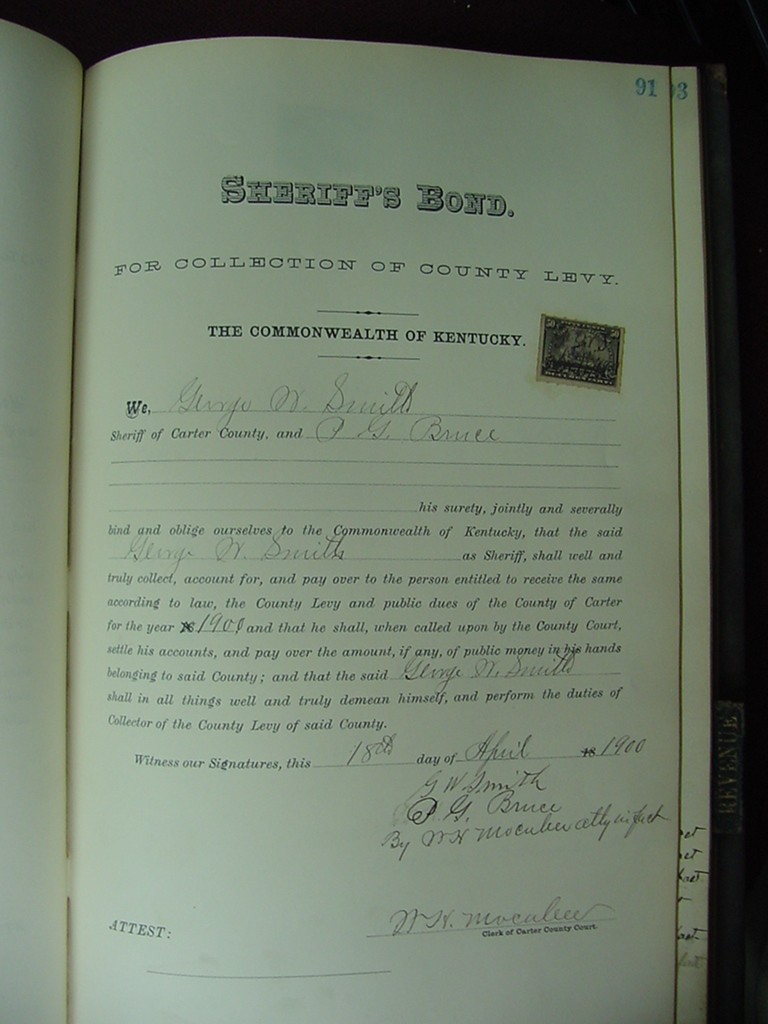 91
93
SHERIFF'S BOND.
FOR COLLECTION OF COUNTY LEVY.
THE COMMONWEALTH OF KENTUCKY.
50 50
We, George W. Smith
Sheriff of Carter County, and P G. Bruce
his surety, jointly and severally
bind and oblige ourselves to the Commonwealth of Kentucky, that the said
George W. Smith as Sheriff, shall well and
truly collect, account for, and pay over to the person entitled to receive the same
according to law, the County Levy and public dues of the County of Carter
for the year 18 1900 and that he shall, when called upon by the County Court,
settle his accounts, and pay over the amount, if any, of public money in his hands
belonging to said County; and that the said George W. Smith
shall in all things well and truly demean himself, and perform the duties of
Collector of the County Levy of said County.
Witness our Signatures, this 18th day of April 18 1900
G W Smith
P. G. Bruce
By W H atty in fact
ATTEST: W. H.
Clerk of Carter County Court.
REVENUE